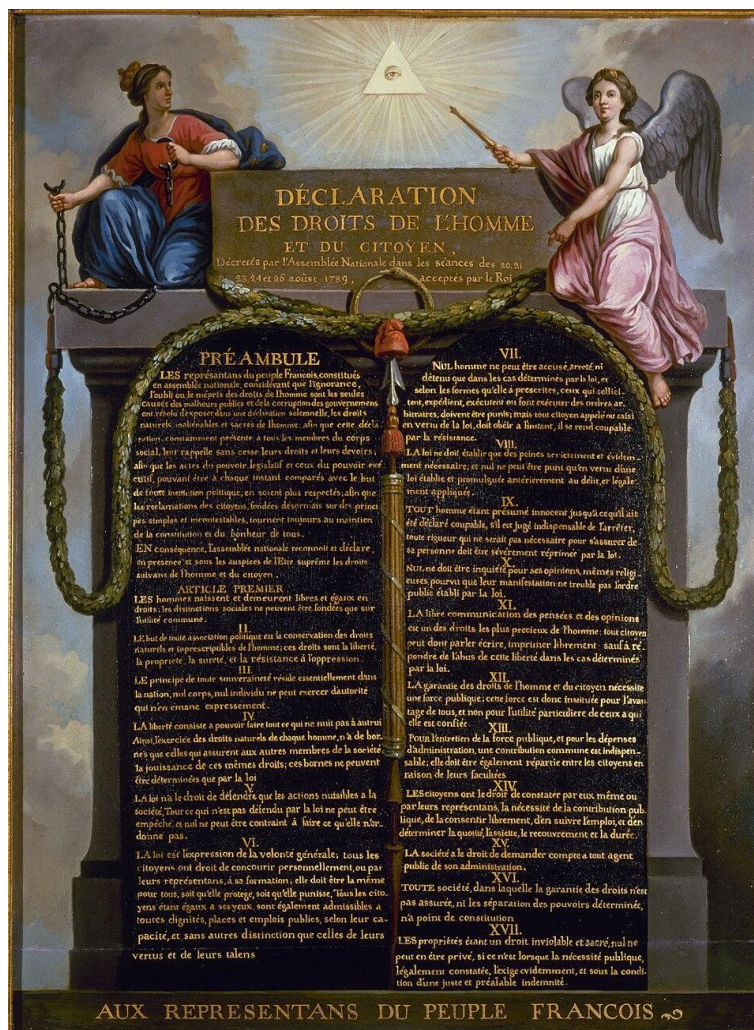 DÉCLARATION
DES DROITS DE L'HOMME
ET DU CITOYEN,
Décretés par l'Assemblée Nationale dans les séances des 20, 21
23, 24 et 26 aoûst 1789, acceptés par le Roi
PRÉAMBULE
LES représentans du peuple François, constitués
en assemblée nationale, considérant que l'ignorance,
l'oubli ou le mépris des droits de l'homme sont les seules
causes des malheurs publics et de la corruption des gouvernemens
ont résolu d'exposer dans une déclaration solemnelle, les droits
naturels, inaliénables et sacrés de l'homme; afin que cette décla
ration, constamment présente a tous les membres du corps
social, leur rappelle sans cesse leurs droits et leurs devoirs;
afin que les actes du pouvoir législatif et ceux du pouvoir exé
cutif, pouvant être à chaque instant comparés avec le but
de toute institution politique, en soient plus respectés; afin que
les reclamations des citoyens, fondées désormais sur des princi
pes simples et incontestables, tournent toujours au maintien
de la constitution et du bonheur de tous.
EN conséquence, l'assemblée nationale reconnoit et déclare,
en presence et sous les auspices de l'Etre suprême les droits
suivans de l'homme et du citoyen.
ARTICLE PREMIER
LES hommes naissent et demeurent libres et égaux en
droits; les distinctions sociales ne peuvent être fondées que sur
l'utilité commune.
II.
LE but de toute association politique est la conservation des droits
naturels et imprescriptibles de l'homme; ces droits sont la liberté,
la propriété, la sureté, et la résistance à l'oppression.
III.
LE principe de toute souveraineté réside essentiellement dans
la nation, nul corps, nul individu ne peut exercer d'autorité
qui n'en émane expressement.
IV
LA liberté consiste a pouvoir faire tout ce qui ne nuit pas à autrui
Ainsi, l'exercice des droits naturels de chaque homme, n'a de bor-
nes que celles qui assurent aux autres membres de la société
la jouissance de ces mêmes droits; ces bornes ne peuvent
être déterminées que par la loi
V.
LA loi n'a le droit de défendre que les actions nuisibles a la
société. Tout ce qui n'est pas défendu par la loi ne peut être
empêché, et nul ne peut être contraint à faire ce qu'elle n'or-
donne pas.
VI.
LA loi est l'expression de la volonté générale; tous les
citoyens ont droit de concourir personnellement, ou par
leurs représentans, à sa formation; elle doit être la même
pour tous, soit qu'elle protege, soit qu'elle punisse. Tous les cito-
yens étant égaux à ses yeux, sont également admissibles a
toutes dignités, places et emplois publics, selon leur ca-
pacité, et sans autres distinction que celles de leurs
vertus et de leurs talens
VII.
NUL homme ne peut être accusé, arreté ni
détenu que dans les cas déterminés par la loi, et
selon les formes qu'elle à prescrites, ceux qui sollici-
tent, expédient, exécutent ou font exécuter des ordres ar-
bitraires, doivent être punis; mais tout citoyen appelé ou saisi
en vertu de la loi, doit obéir a l'instant, il se rend coupable
par la résistance.
VIII.
LA loi ne doit établir que des peines strictement et évidem-
ment nécessaire; et nul ne peut être puni qu'en vertu d'une
loi établie et promulguée antérieurement au délit, et légale-
ment appliquée.
IX.
TOUT homme étant présumé innocent jusqu'a ce qu'il ait
été déclaré coupable, s'il est jugé indispensable de l'arrêter,
toute rigueur qui ne serait pas nécessaire pour s'assurer de
sa personne doit être sévèrement réprimée par la loi.
X.
NUL ne doit être inquiété pour ses opinions, mêmes religi-
euses pourvu que leur manifestation ne trouble pas l'ordre
public établi par la loi.
XI.
LA libre communication des pensées et des opinions
est un des droits les plus precieux de l'homme; tout citoyen
peut dont parler écrire, imprimer librement; sauf à ré-
pondre de l'abus de cette liberté dans les cas déterminés
par la loi.
XII.
LA garantie des droits de l'homme et du citoyen nécessite
une force publique; cette force est donc instituée pour l'avan-
tage de tous, et non pour l'utilité particuliere de ceux a qui
elle est confiée.
XIII.
POUR l'entretien de la force publique, et pour les dépenses
d'administration, une contribution commune est indispen-
sable; elle doit être également répartie entre les citoyens en
raison de leurs facultées
XIV.
LES citoyens ont le droit de constater par eux même ou
par leurs représentans, la nécessité de la contribution pub-
lique, de la consentir librement, d'en suivre l'emploi, et d'en
déterminer la quotité, l'assiette, le recouvrement et la durée.
XV.
LA société a le droit de demander compte a tout agent
public de son administration.
XVI.
TOUTE société, dans laquelle la garantie des droits n'est
pas assurée, ni les séparation des pouvoirs déterminée,
n'a point de constitution
XVII.
LES propriétés étant un droit inviolable et sacré, nul ne
peut en être privé, si ce n'est lorsque la nécessité publique,
légalement constatée, l'exige evidemment, et sous la condi-
tion d'une juste et préalable indemnité.
AUX REPRESENTANS DU PEUPLE FRANCOIS